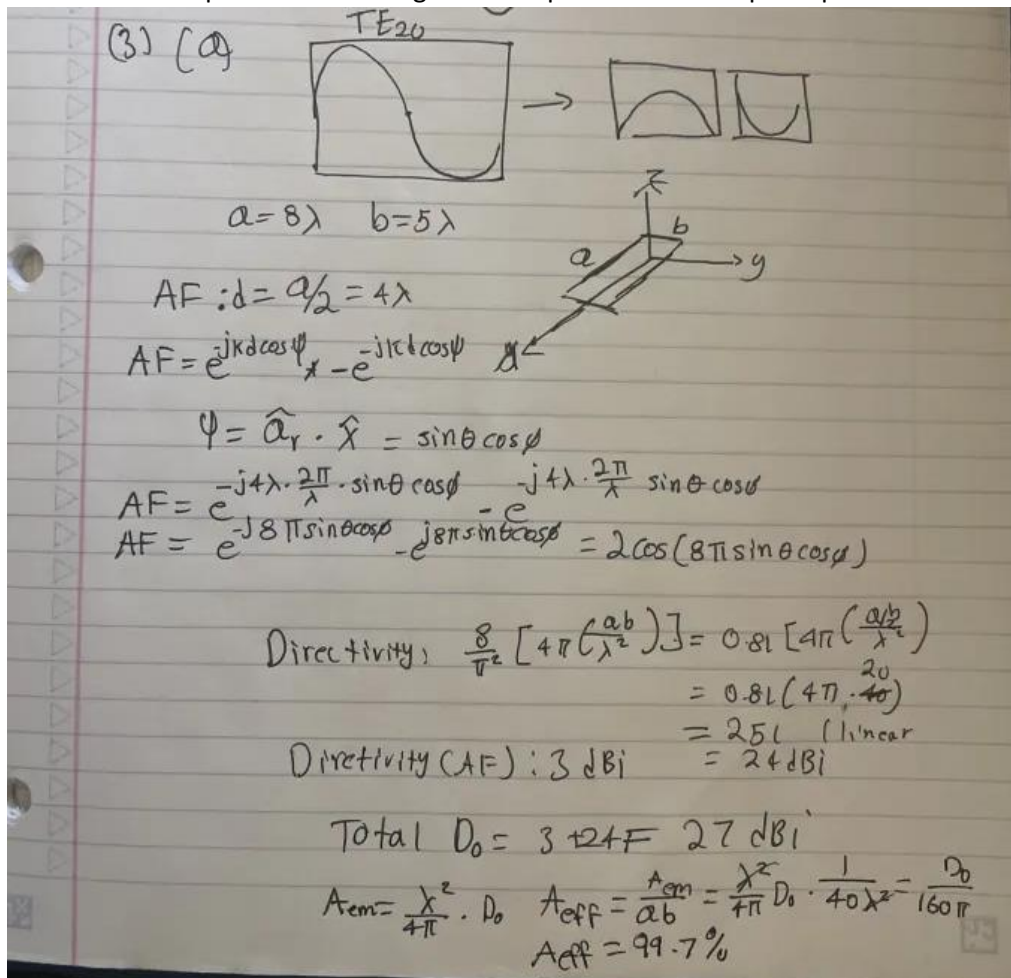 (3) (a) TE₂₀
a=8λ b=5λ
z
a b
y
AF : d = a/2 = 4λ
AF = e^(-jkd cosψ) - e^(-jkd cosψ)
ψ = â_r · x̂ = sinθ cosφ
AF = e^(-j4λ · 2π/λ · sinθ cosφ) - e^(-j4λ · 2π/λ sinθ cosφ)
AF = e^(-j8π sinθ cosφ) - e^(j8π sinθ cosφ) = 2cos(8π sinθ cosφ)
Directivity, 8/π² [4π(ab/λ²)] = 0.81 [4π(a/2 b/λ²)
= 0.81(4π · 20)
= 251 (linear
Diretivity (AF) : 3 dBi = 24 dBi
Total D₀ = 3 +24 = 27 dBi
Aem = λ²/4π · D₀ Aeff = Aem/ab = λ²/4π D₀ · 1/40λ² = D₀/160π
Aeff = 99.7%